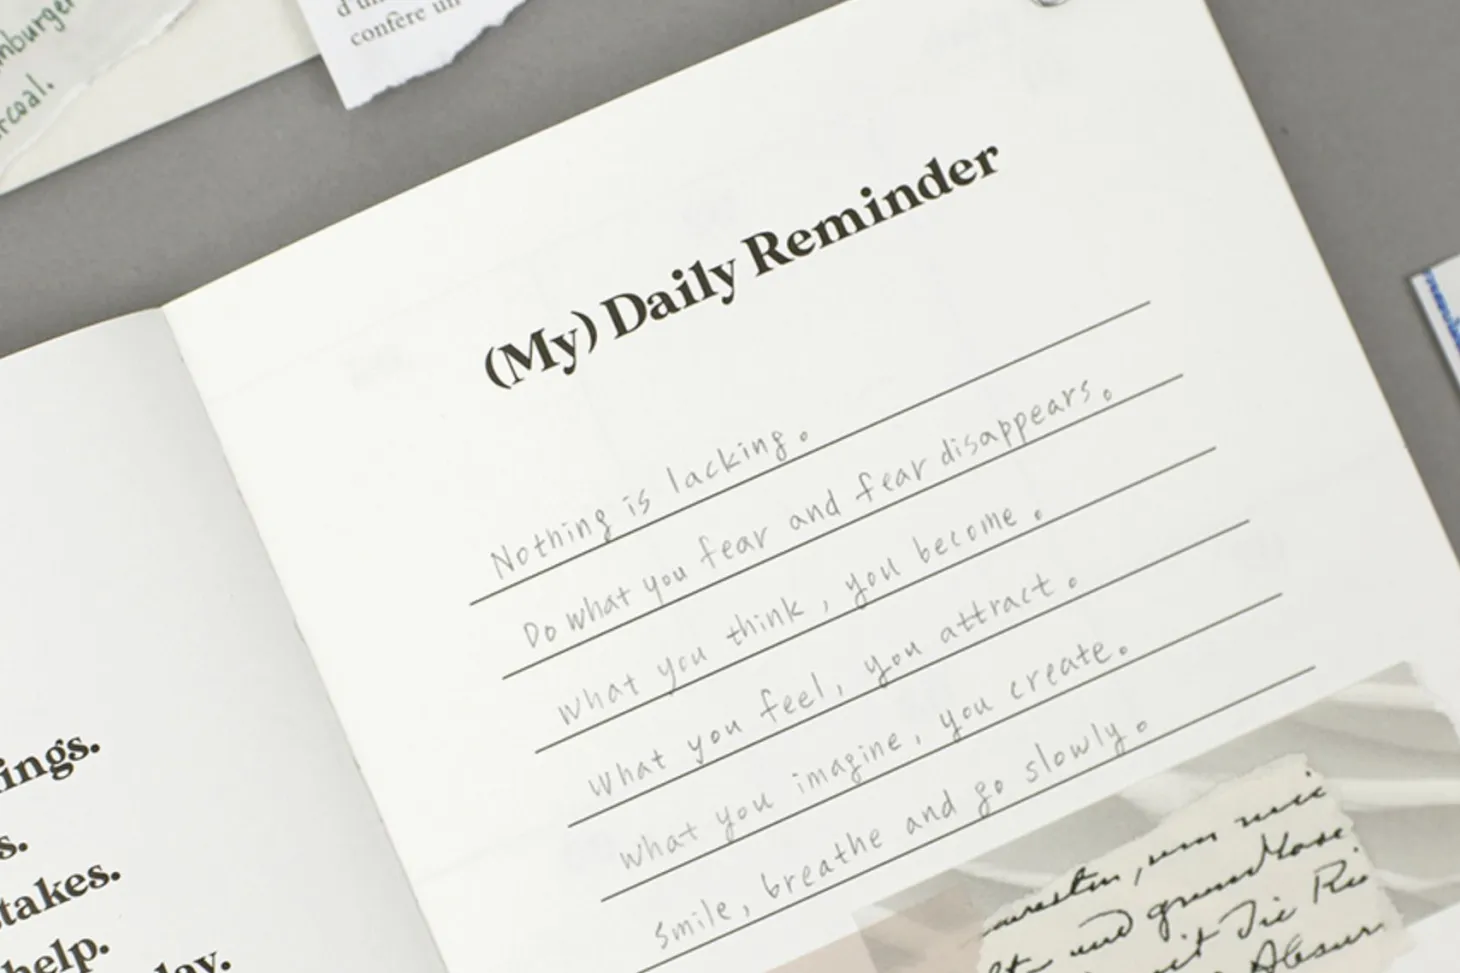 d'un
confère un
coal.
(My) Daily Reminder
Nothing is lacking.
Do what you fear and fear disappears.
What you think, you become.
What you feel, you attract.
What you imagine, you create.
smile, breathe and go slowly.
ings.
s.
takes.
help.
lay.
und
Die